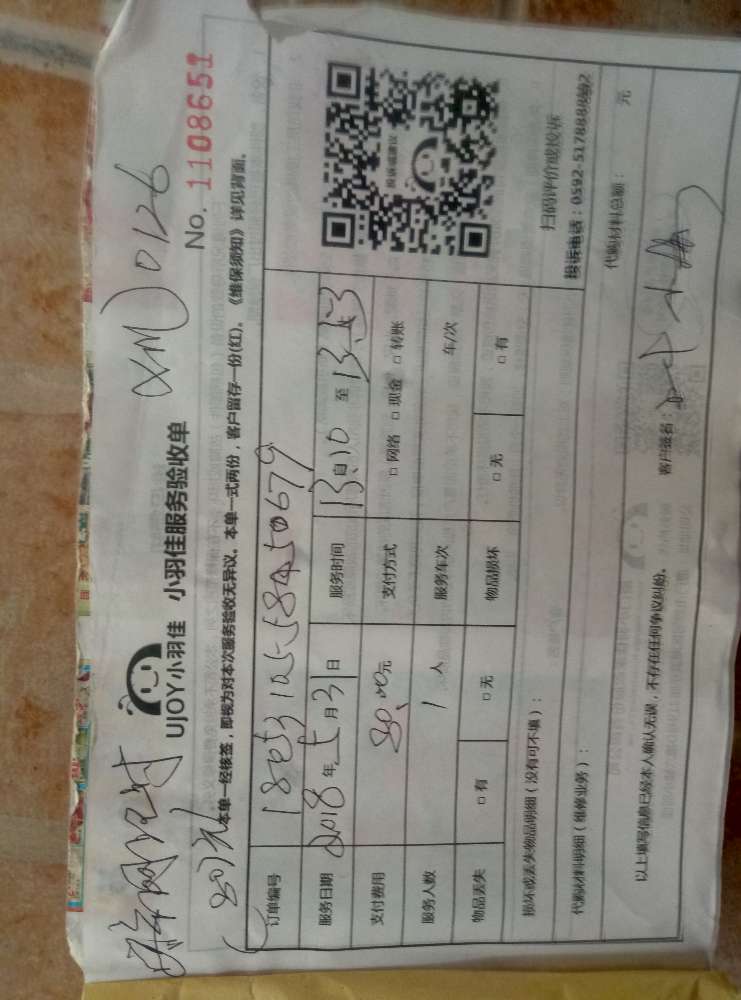 XM 0126
UJOY小羽佳 小羽佳服务验收单
No. 1108651
本单一经核签，即视为对本次服务验收无异议。本单一式两份，客户留存一份(红)。《维保须知》详见背面。
订单编号
服务日期 2018年5月31日 服务时间 13:10 至 13:53
支付费用 80.00元 支付方式 □网络 □现金 □转账
服务人数 1 人 服务车次 车/次
物品丢失 □有 □无 物品损坏 □无 □有
投诉或建议
扫码评价或投诉
损坏或丢失物品明细（没有可不填）：
代购材料明细（维修业务）：
代购材料总额： 元
以上填写信息已经本人确认无误，不存在任何争议纠纷。 客户签名：